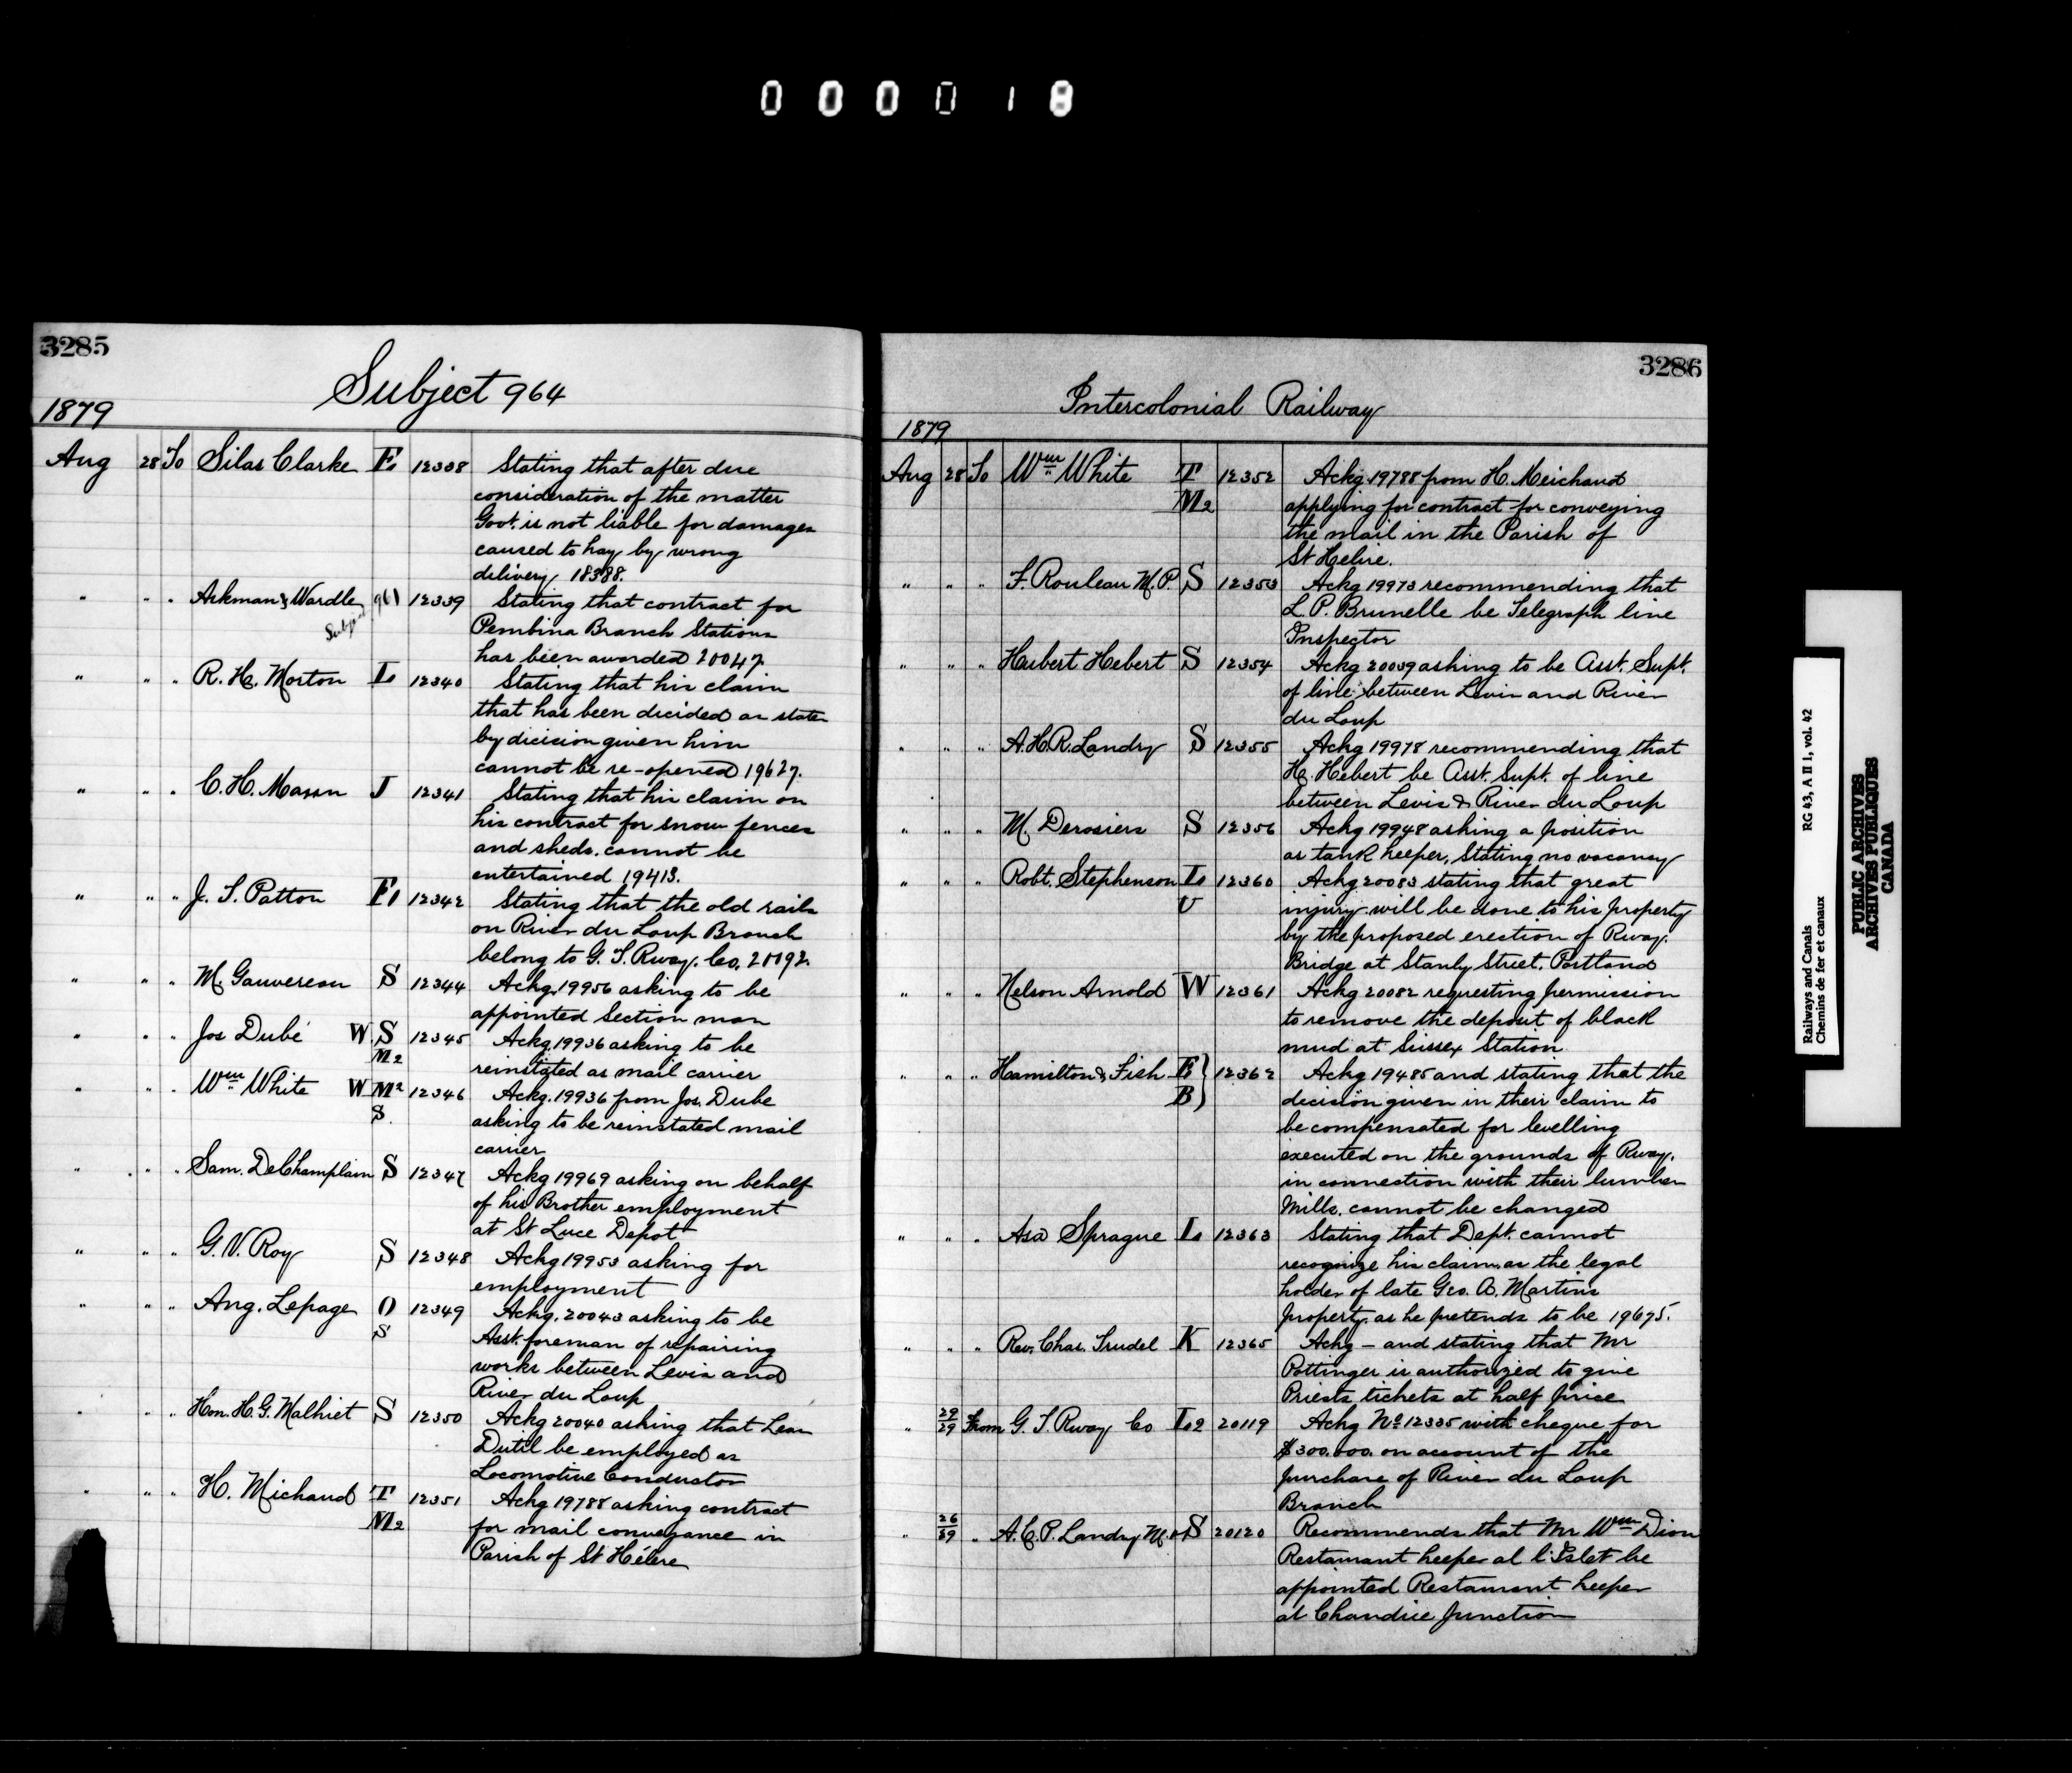 000018
3285
Subject 964
1879
Aug 28 To Silas Clarke E 12338 Stating that after due
consideration of the matter
Govt. is not liable for damages
caused to hay by wrong
delivery 18388.
" " " Ackman & Wardle Subject 961 12339 Stating that contract for
Pembina Branch Stations
has been awarded 20047.
" " " R. H. Morton L 12340 Stating that his claim
that has been decided on state
by dicision given him
cannot be re-opened 19627.
" " " C. H. Mason J 12341 Stating that his claim on
his contract for snow fences
and sheds. cannot be
entertained 19413.
" " " J. S. Patton 12342 Stating that the old rails
on River du Loup Branch
belong to G. T. Rway. Co. 20092.
" " " M. Gauvereau S 12344 Ackg. 19956 asking to be
appointed Section man
" " " Jos Dubé W. S M2 12345 Ackg. 19936 asking to be
reinstated as mail carrier
" " " Wm White W M2 S. 12346 Ackg. 19936 from Jos. Dube
asking to be reinstated mail
carrier
" " " Sam. DeChamplain S 12347 Ackg 19969 asking on behalf
of his Brother employment
at St Luce Depot
" " " G. V. Roy S 12348 Ackg 19953 asking for
employment
" " " Aug. Lepage O S 12349 Ackg. 20043 asking to be
Asst. foreman of repairing
works between Levis and
River du Loup
" " " Hon. H. G. Malhiet S 12350 Ackg 20040 asking that Lean
Dutil be employed as
Locomotive Conductor
" " " H. Michaud T M2 12351 Ackg 19788 asking contract
for mail conveyance in
Parish of St Hélère
3286
Intercolonial Railway
1879
Aug 28 To Wm White T M2 12352 Ackg 19788 from H. Meichaud
applying for contract for conveying
the mail in the Parish of
St Helire.
" " " F. Rouleau M.P. S 12353 Ackg 19973 recommending that
L. P. Brunelle be Telegraph line
Inspector
" " " Hubert Hebert S 12354 Ackg 20039 asking to be Asst. Supt.
of line between Levis and River
du Loup
" " " A. H. R. Landry S 12355 Ackg 19978 recommending that
H. Hebert be Asst. Supt. of line
between Levis & River du Loup
" " " M. Derosiers S 12356 Ackg 19948 asking a position
as tank keeper, Stating no vacancy
" " " Robt. Stephenson L U 12360 Ackg 20083 stating that great
injury will be done to his property
by the proposed erection of Rway.
Bridge at Stanly Street, Portland
" " " Nelson Arnold W 12361 Ackg 20082 requesting permission
to remove the deposit of black
mud at Sussex Station
" " " Hamilton & Fish E B } 12362 Ackg 19485 and stating that the
decision given in their claim to
be compensated for levelling
executed on the grounds of Rway.
in connection with their lumber
Mills. cannot be changed
" " " Asa Sprague L 12363 Stating that Dept. cannot
recognize his claim as the legal
holder of late Geo. A. Martins
property. as he pretends to be 19675.
" " " Rev. Chas. Trudel K 12365 Ackg - and stating that Mr
Pottinger is authorized to give
Priests tickets at half price
" 29/29 From G. T. Rway Co L2 20119 Ackg No 12335 with cheque for
$300.000. on account of the
purchase of River du Loup
Branch
" " A. C. P. Landry M.P. S 20120 Recommends that Mr Wm Dion
Restaurant keeper at l'Islet be
appointed Restaurant keeper
at Chandiie Junction
Railways and Canals RG 43, A II 1, vol. 42
Chemins de fer et canaux
PUBLIC ARCHIVES
ARCHIVES PUBLIQUES
CANADA